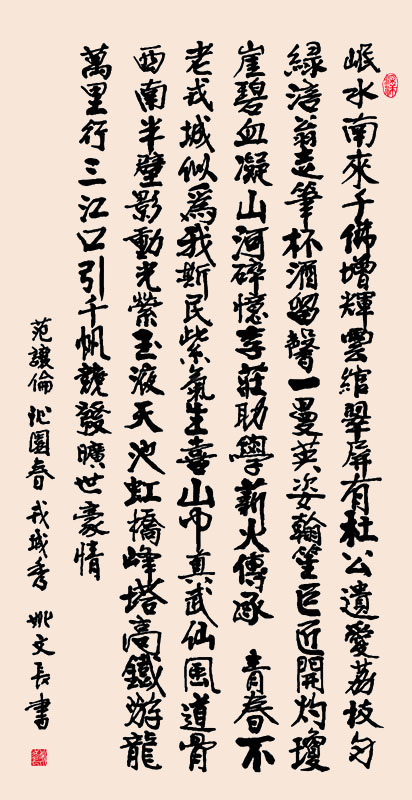 岷水南來千佛增輝雲綰翠屏有杜公遺愛荔枝勻
綠涪翁走筆杯酒留馨一曼英姿翰笙巨匠開灼瓊
崖碧血凝山河碎憶李莊助學薪火傳承 青春不
老戎城似爲我斯民紫氣生喜山中真武仙風道骨
西南半壁影動光縈玉液天池虹橋峰塔高鐵游龍
萬里行三江口引千帆競發曠世豪情
范讓倫 沁園春 戎城秀 姚文長書